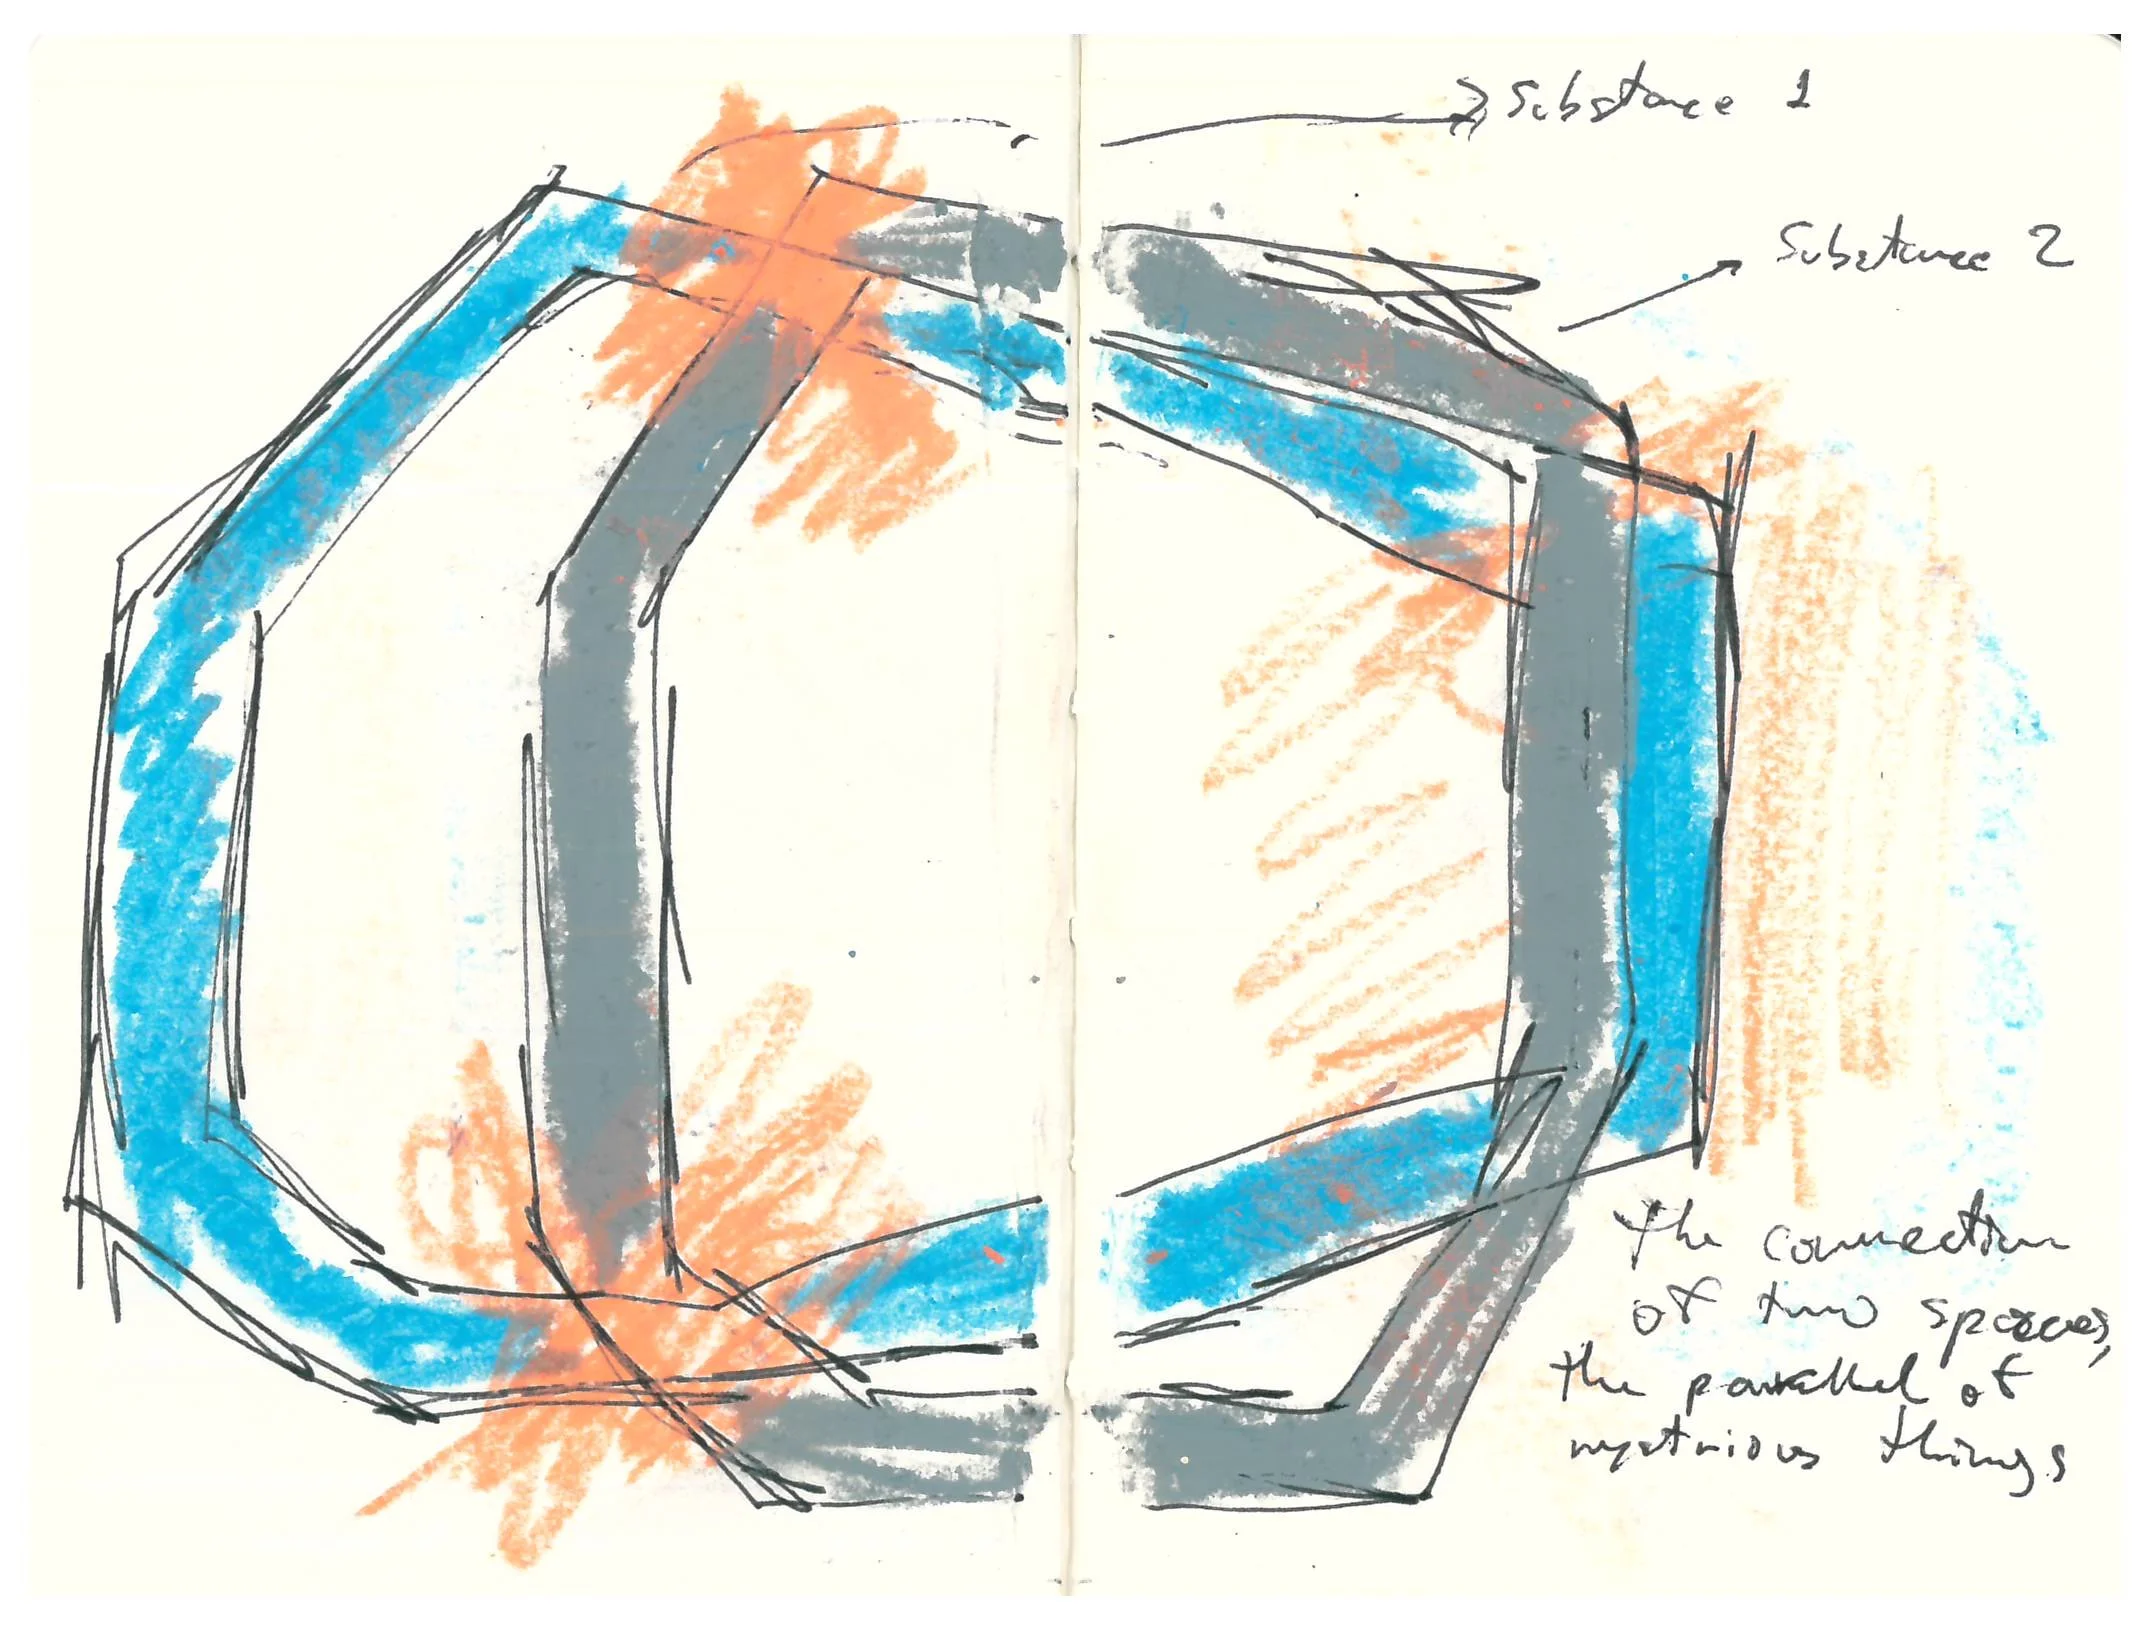 Substance 1
Substance 2
The connection
of two spaces,
the parallel of
mysterious things